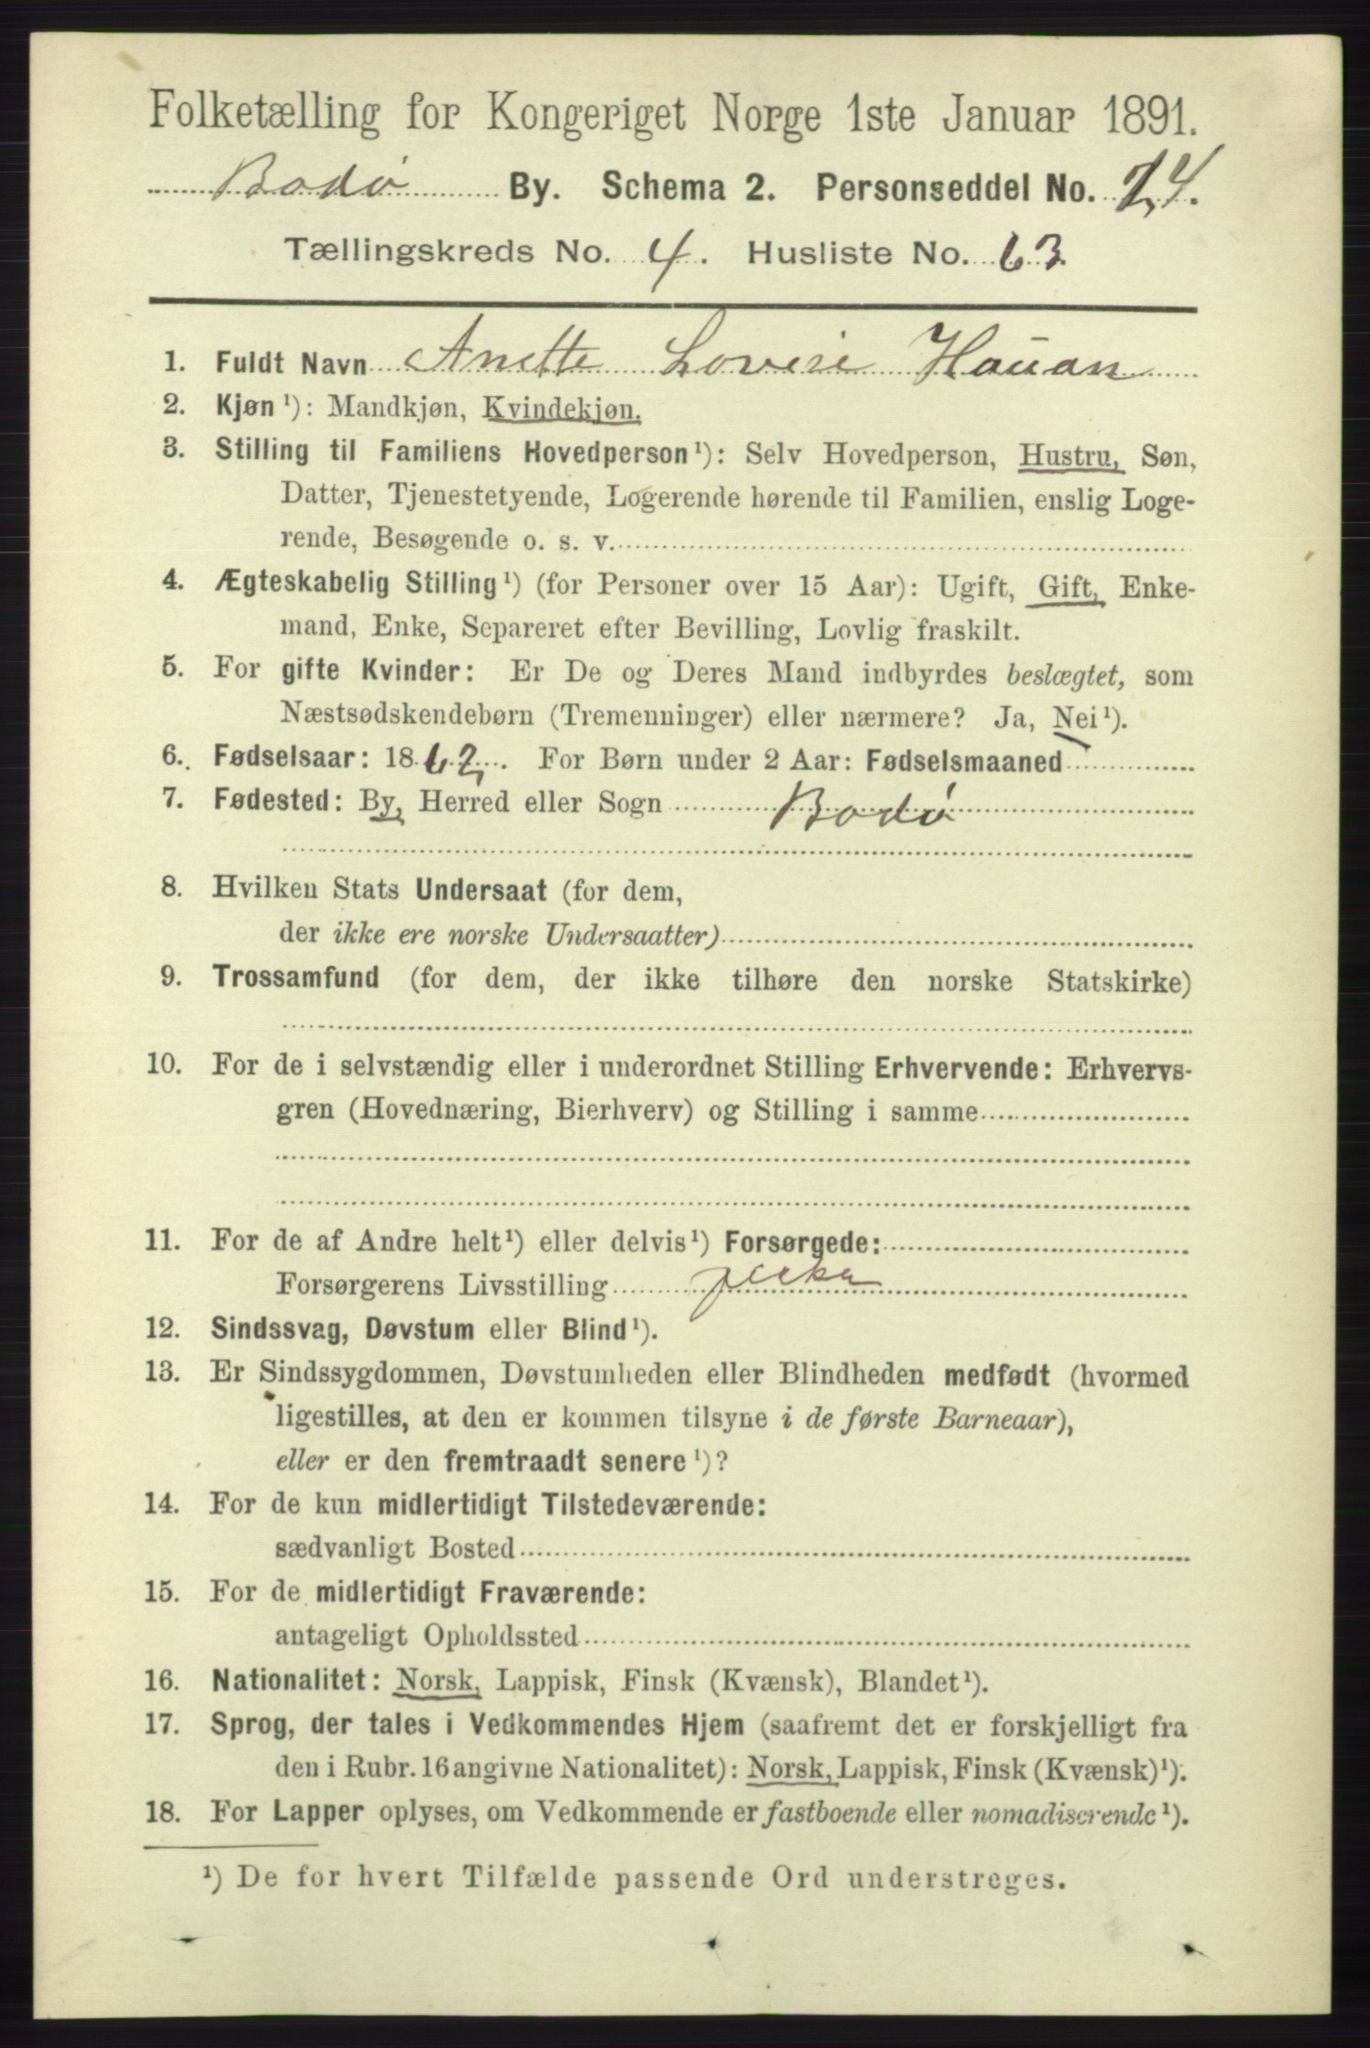 Folketælling for Kongeriget Norge 1ste Januar 1891.
Bodø By. Schema 2. Personseddel No. 24.
Tællingskreds No. 4. Husliste No. 63.
1. Fuldt Navn Anette Lovise Hauan
2. Kjøn ¹): Mandkjøn, Kvindekjøn.
3. Stilling til Familiens Hovedperson ¹): Selv Hovedperson, Hustru, Søn,
Datter, Tjenestetyende, Logerende hørende til Familien, enslig Loge-
rende, Besøgende o. s. v.
4. Ægteskabelig Stilling ¹) (for Personer over 15 Aar): Ugift, Gift, Enke-
mand, Enke, Separeret efter Bevilling, Lovlig fraskilt.
5. For gifte Kvinder: Er De og Deres Mand indbyrdes beslægtet, som
Næstsødskendebørn (Tremenninger) eller nærmere? Ja, Nei ¹).
6. Fødselsaar: 1862. For Børn under 2 Aar: Fødselsmaaned
7. Fødested: By, Herred eller Sogn Bodø
8. Hvilken Stats Undersaat (for dem,
der ikke ere norske Undersaatter)
9. Trossamfund (for dem, der ikke tilhøre den norske Statskirke)
10. For de i selvstændig eller i underordnet Stilling Erhvervende: Erhvervs-
gren (Hovednæring, Bierhverv) og Stilling i samme
11. For de af Andre helt ¹) eller delvis ¹) Forsørgede:
Forsørgerens Livsstilling
12. Sindssvag, Døvstum eller Blind ¹).
13. Er Sindssygdommen, Døvstumheden eller Blindheden medfødt (hvormed
ligestilles, at den er kommen tilsyne i de første Barneaar),
eller er den fremtraadt senere ¹)?
14. For de kun midlertidigt Tilstedeværende:
sædvanligt Bosted
15. For de midlertidigt Fraværende:
antageligt Opholdssted
16. Nationalitet: Norsk, Lappisk, Finsk (Kvænsk), Blandet ¹).
17. Sprog, der tales i Vedkommendes Hjem (saafremt det er forskjelligt fra
den i Rubr. 16 angivne Nationalitet): Norsk, Lappisk, Finsk (Kvænsk) ¹).
18. For Lapper oplyses, om Vedkommende er fastboende eller nomadiserende ¹).
¹) De for hvert Tilfælde passende Ord understreges.